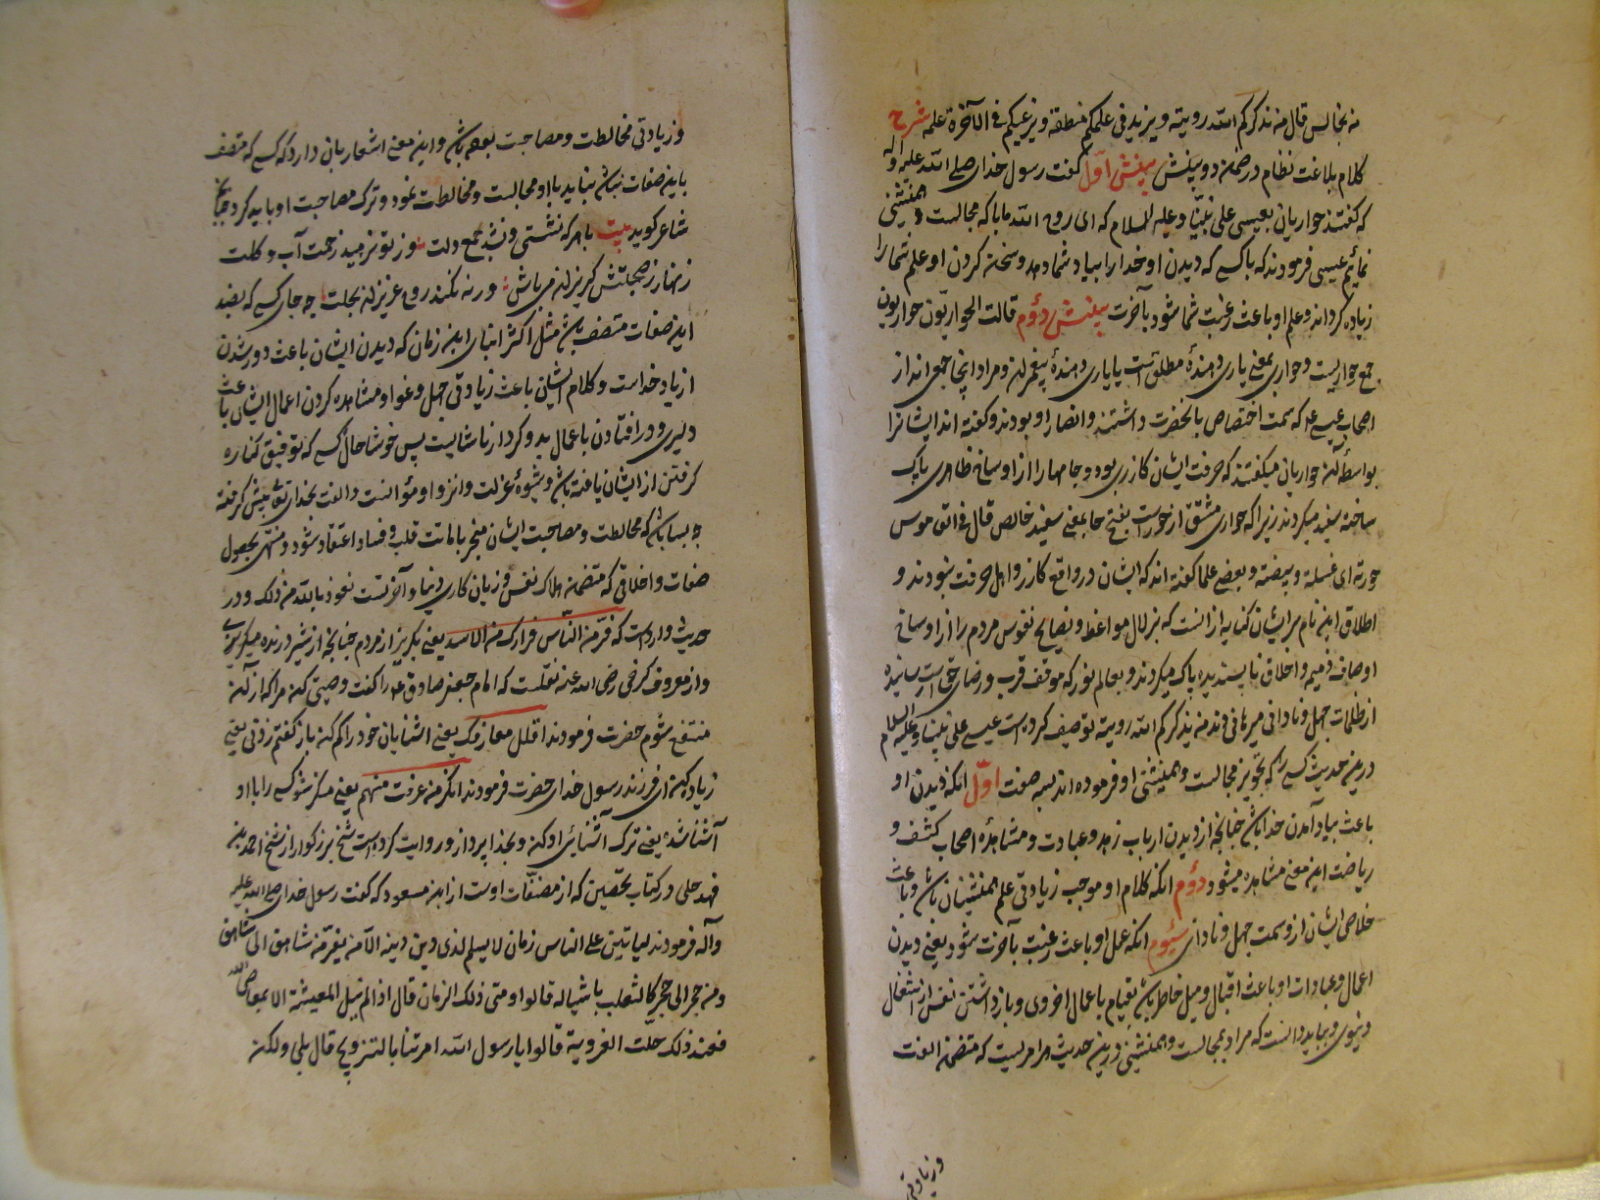 من نجالس قال من یذکرکم الله رویته و یزید فی علمکم منطقه و یرغبکم فی الآخرة علمه شرح
کلام بلاغت نظام در ضمن دو بینش بینش اوّل گفت رسول خدای صلی الله علیه و اله
که گفتند حواریان بعیسی علی نبیّنا و علیه السلام که ای روح الله ما با که مجالست و همنشینی
نمائیم عیسی فرمودند که با کسی که دیدن او خدا را بیاد شما دهد و سخن کردن او علم شما را
زیاده گرداند و علم او باعث رغبت شما شود بآخرت بینش دوم قالت الحواریّون حواریون
جمع حواریست و حواری بمعنی یاری دهندهٔ مطلق است یا یاری دهندهٔ پیغمبران و مراد اینجا جمعی اند از
اصحاب عیسی ع که سمت اختصاص بانحضرت داشتند و انصار او بودند و گفته اند ایشانرا
بواسطهٔ آن حواریان میگفتند که حرفت ایشان کازری بود و جامها را از اوساخ ظاهری پاک
ساخته سفید میکردند زیرا که حواری مشتق از حورست بفتح حا بمعنی سفید خالص قال فی القاموس
حورته ای غسله و بیضه و بعضی علما گفته اند که ایشان در واقع کازر و اهل حرفت نبودند و
اطلاق این نام بر ایشان کنایه از انست که بزلال مواعظ و نصایح نفوس مردم را از اوساخ
اوصاف ذمیمه و اخلاق ناپسندیده پاک میکردند و بعالم نور که موقف قرب و رضای حق است رسانیده
از ظلمات جهل و نادانی میرهانیدند من یذکرکم الله رویته توصیف کرده است عیسی علی نبینا و علیه السلام
درین حدیث کسی را که تجویز مجالست و همنشینی او فرموده اند بسه صفت اوّل انکه دیدن او
باعث بیاد آمدن خدا باشد چنانچه از دیدن ارباب زهد و عبادت و مشاهدهٔ اصحاب کشف و
ریاضت این معنی مشاهده میشود دوم انکه کلام او موجب زیادتی علم همنشینان باشد و باعث
خلاصی ایشان از وسمت جهل و نادانی سیوم انکه عمل او باعث رغبت بآخرت شود یعنی دیدن
اعمال و عبادات او باعث اقبال و میل خاطر باشد بقیام باعمال اخروی و بازداشتن نفس از اشتغال
دنیوی و بباید دانست که مراد بمجالست و همنشینی درین حدیث هر امریست که متضمن الفت
و زیادتی
و زیادتی مخالطت و مصاحبت بوده باشد و این معنی اشعار بان دارد که کسی که متصف
باین صفات نباشد نباید با او مجالست و مخالطت نمود و ترک مصاحبت او باید کرد چنانچه
شاعر گوید بیت با هر که نشستی و نشد جمع دلت وز تو نرمید زحمت آب و گلت
زنهار ز صحبتش گریزان می باش ورنه نکند روح عزیزان بحلت چه جای کسی که بضد
این صفات متصف باشد مثل اکثر ابنای این زمان که دیدن ایشان باعث دور شدن
از یاد خداست و کلام ایشان باعث زیادتی جهل و غوا و مشاهده کردن اعمال ایشان باعث
دلیری و در افتادن باعمال بد و کردار ناشایست پس خوشا حال کسی که توفیق کناره
گرفتن از ایشان یافته باشد و شیوهٔ عزلت و انزوا و موانست و الفت بخدای تعالی پیش گرفته
چه بسا باشد که مخالطت و مصاحبت ایشان منجر باماتت قلب و فساد اعتقاد شود و منتهی بحصول
صفات و اخلاقی که متضمن هلاک نفس و زیان کاری دنیا و آخرتست نعوذ بالله من ذلک و در
حدیث وارد است که فرّ من النّاس فرارک من الاسد یعنی بگریز از مردم چنانچه از شیر درنده میگریزی
و از معروف کرخی رضی الله عنه نقلست که امام جعفر صادق ع را گفت وصیتی کن مرا که از آن
منتفع شوم حضرت فرمودند اقلل معارفک یعنی اشنایان خود را کم کن باز گفتم زدنی یعنی
زیاد کن ای فرزند رسول خدای حضرت فرمودند انکر من عرفت منهم یعنی منکر شو کسی را با او
آشنا شدهٔ یعنی ترک آشنائی او کن و بخدا پرداز و روایت کرده است شیخ بزرگوار از شیخ احمد بن
فهد حلی در کتاب تحصین که از مصنفّات اوست از ابن مسعود که گفت رسول خدای صلی الله علیه
و آله فرمودند لیاتین علی الناس زمان لا یسلم لذی دین دینه الا من یفر من شاهق الی شاهق
و من حجر الی حجر کالثعلب باشباله قالوا و متی ذلک الزمان قال اذا لم تنل المعیشة الا بمعاصی الله
فعند ذلک حلّت العزوبة قالوا یا رسول الله امرتنا بالتزویج قال بلی ولکن